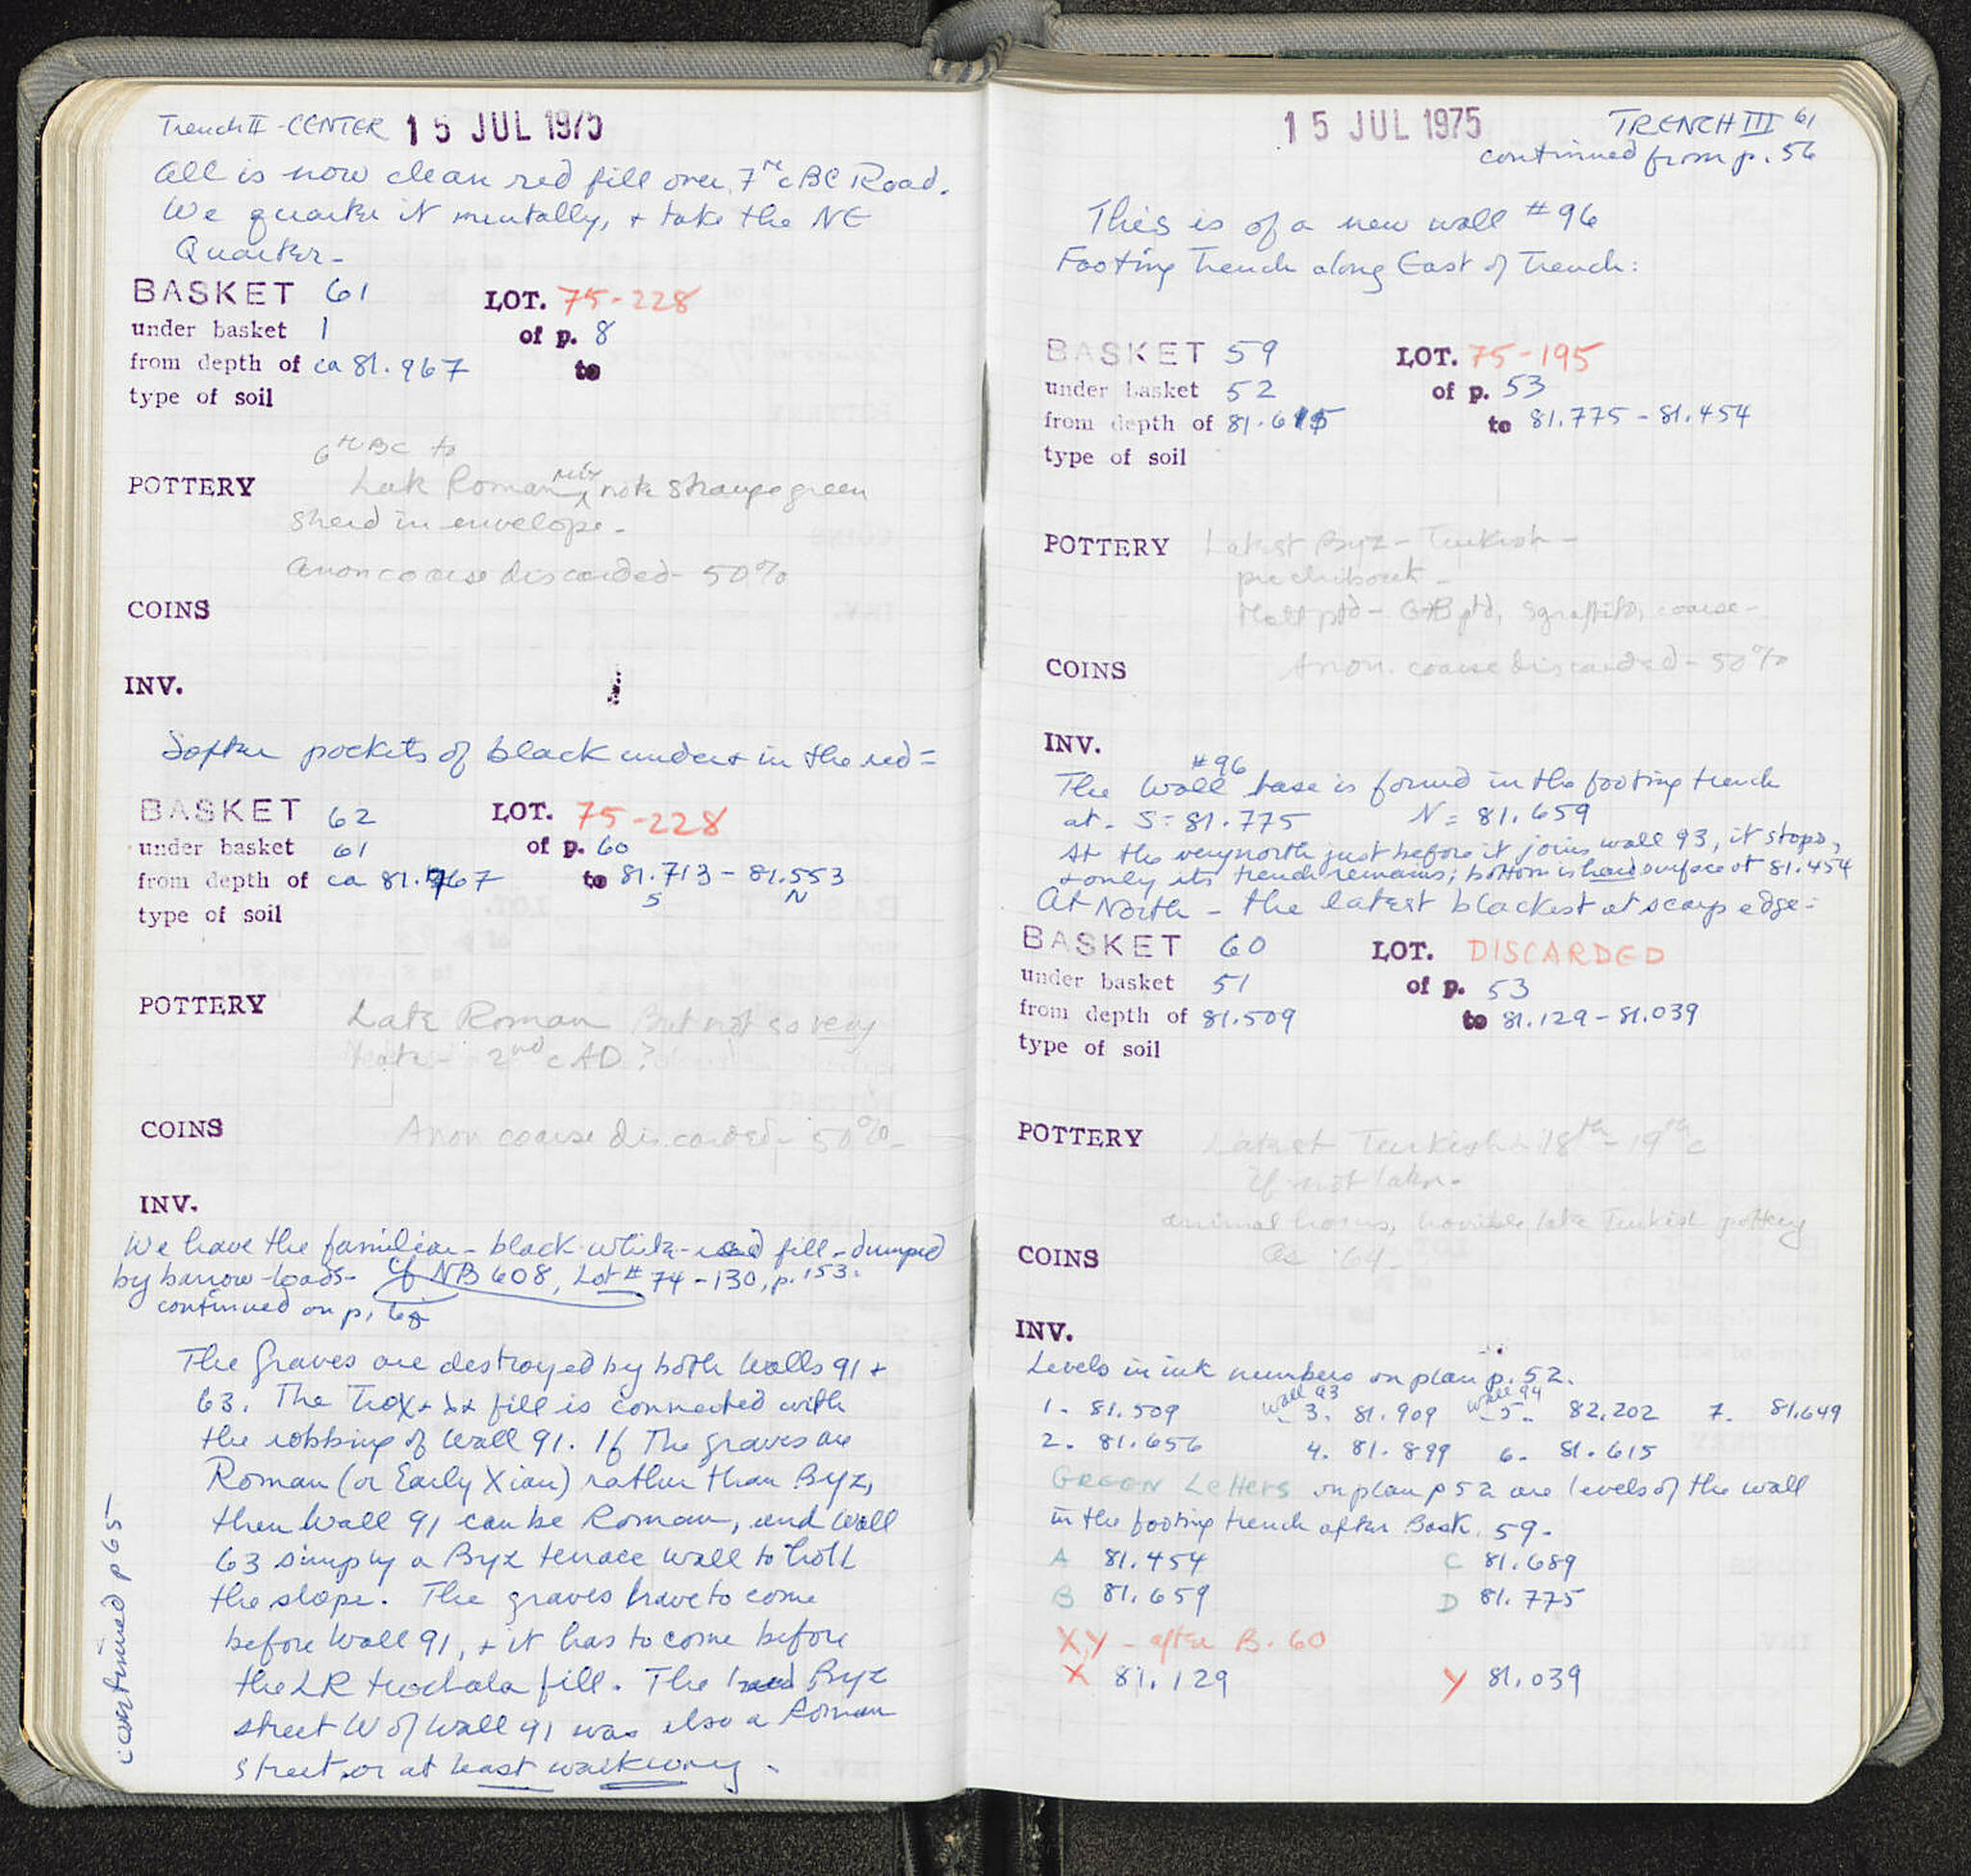 Trench II - CENTER 15 JUL 1975
All is now clean red fill over 7th c BC Road.
We quarter it mentally, + take the NE
Quarter -
BASKET 61 LOT. 75-228
under basket 1 of p. 8
from depth of ca 81.967 to
type of soil
6th BC to
POTTERY Late Roman mix note strange green
sherd in envelope -
Anon coarse discarded - 50%
COINS
INV.
Softer pockets of black under + in the red =
BASKET 62 LOT. 75-228
under basket 61 of p. 60
from depth of ca 81.967 to 81.713 - 81.553
S N
type of soil
POTTERY Late Roman But not so very
late - 2nd c AD?
COINS Anon coarse discarded - 50% -
INV.
We have the familiar - black-white-red fill - dumped
by barrow-loads - cf NB 608, Lot # 74-130, p. 153.
continued on p.
The Graves are destroyed by both Walls 91 +
63. The fill is connected with
the robbing of Wall 91. If the graves are
Roman (or Early Xian) rather than Byz,
then Wall 91 can be Roman, and Wall
63 simply a Byz terrace wall to hold
the slope. The graves have to come
before Wall 91, + it has to come before
the LR trochala fill. The Byz
street W of Wall 91 was also a Roman
street, or at least walkway.
continued p 65
15 JUL 1975 TRENCH III 61
continued from p. 56
This is of a new wall #96
Footing Trench along East of Trench:
BASKET 59 LOT. 75-195
under basket 52 of p. 53
from depth of 81.615 to 81.775 - 81.454
type of soil
POTTERY Latest Byz - Turkish -
pre chibouk -
Matt ptd - G+B ptd, sgraffito, coarse -
COINS Anon. coarse discarded - 50%
INV.
#96
The Wall base is found in the footing trench
at - S = 81.775 N = 81.659
At the very north just before it joins wall 93, it stops,
+ only its trench remains; bottom is hard surface at 81.454
At North - the latest blackest at scarp edge:
BASKET 60 LOT. DISCARDED
under basket 51 of p. 53
from depth of 81.509 to 81.129 - 81.039
type of soil
POTTERY Latest Turkish - 18th - 19th c
if not later -
animal horns, horrible late Turkish pottery
COINS as '64 -
INV.
Levels in ink numbers on plan p. 52.
1 - 81.509 wall 93 - 3. 81.909 wall 94 - 5 - 82.202 7. 81.649
2. 81.656 4. 81.899 6 - 81.615
GREEN Letters on plan p 52 are levels of the wall
in the footing trench after Bask. 59 -
A 81.454 C 81.689
B 81.659 D 81.775
X, Y - after B. 60
X 81.129 Y 81.039